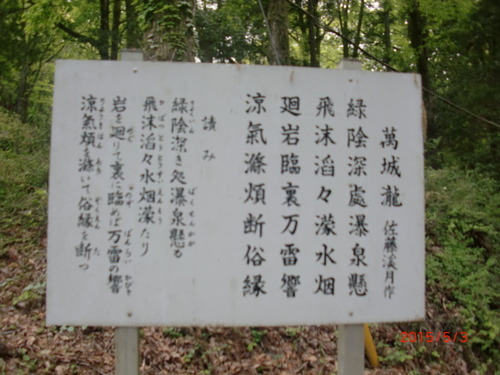 萬城滝 佐藤淡月作
緑陰深處瀑泉懸
飛沫滔々濛水烟
廻岩臨裏万雷響
涼氣滌煩断俗縁
読み
緑陰深き処瀑泉懸る
飛沫滔々水烟濛たり
岩を廻りて裏に臨めば万雷の響
涼氣煩を滌いで俗縁を断つ
2015/5/3